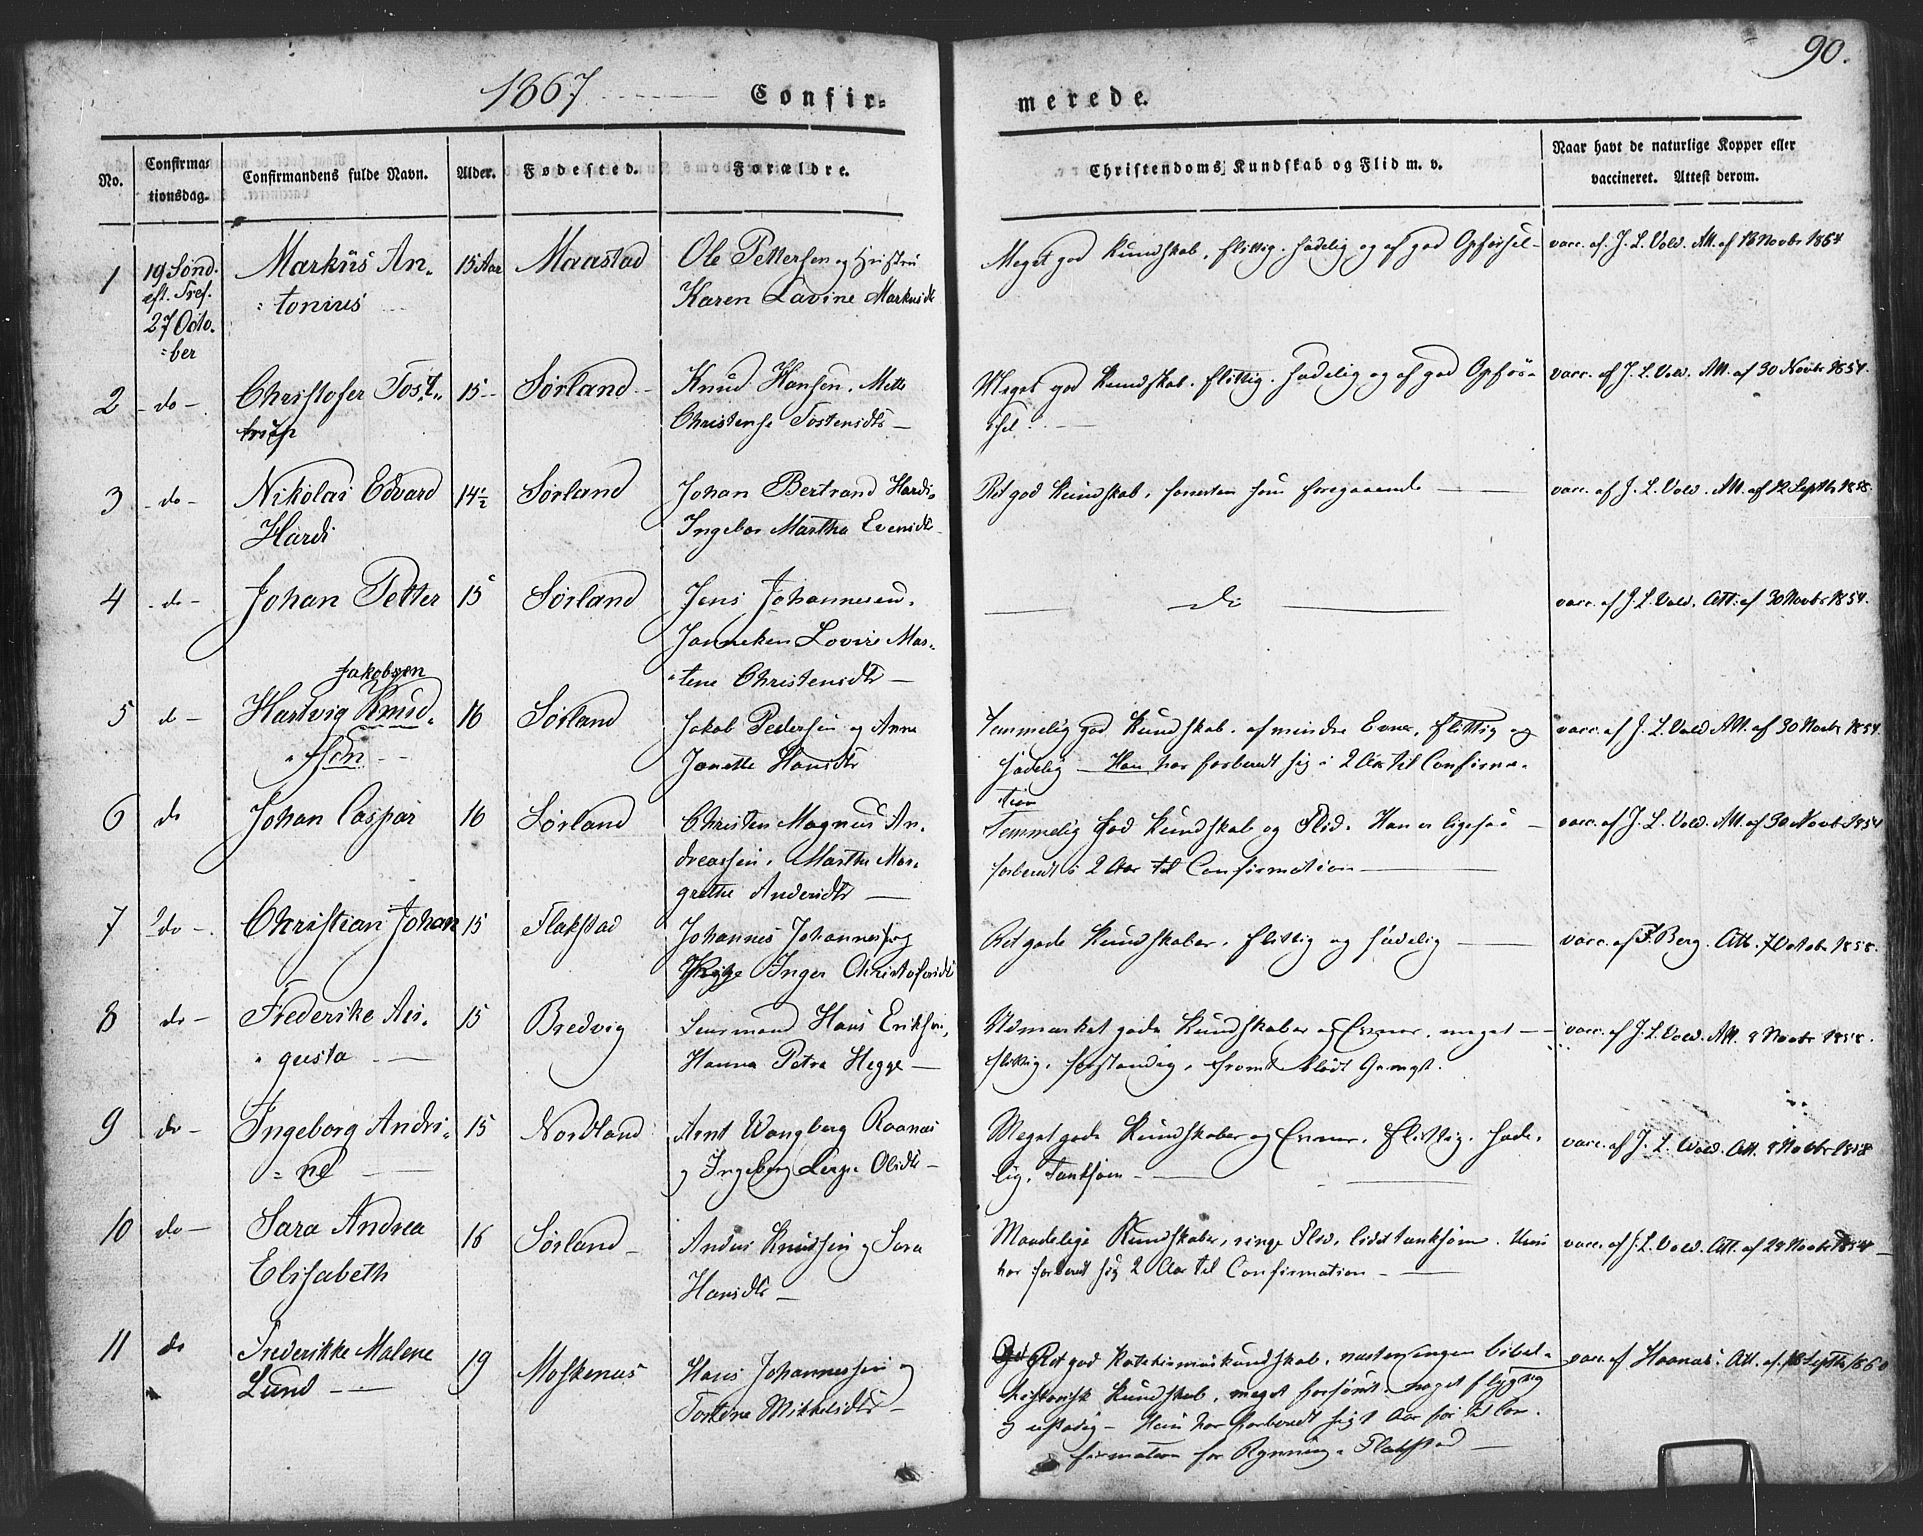 1867 Confir-
merede.
90.
No.
Confirma-
tionsdag.
Confirmandens fulde Navn.
Alder.
Fødested.
Forældre.
Christendoms Kundskab og Flid m. v.
Naar havt de naturlige Kopper eller
vaccineret. Attest derom.
1
19 Sønd.
eft. Tref.
27 Octo-
ber
Markus An-
tonius
15 Aar
Maastad
Ole Pettersen og Hustru
Karen Lavine Markusdt
Meget god Kundskab, flittig, sædelig og af god Opførsel -
vacc. af J. L. Vold. Att. af 13 Novbr 1854
2
- do -
Christofer Tost-
15
Sørland
Knud Hansen, Mette
Christense Tostensdtr -
Meget god Kundskab, flittig, sædelig og af god Opfør-
sel. -
vacc. af J. L. Vold. Att. af 30 Novbr 1854.
3
- do -
Nikolai Edvard
Hardi
14½
Sørland
Johan Bertrand Hardi,
Ingebor Martha Evensdtr
Ret god Kundskab, forresten som foregaaende -
vacc. af J. L. Vold. Att. af 12 Septbr 1858.
4
- do -
Johan Petter
15
Sørland
Jens Johannesen,
Janneken Lovise Mar-
tene Christensdtr -
- do -
vacc. af J. L. Vold. Att. af 30 Novbr 1854.
5
do -
Jakobsen
Hartvig Knud-
sen
16
Sørland
Jakob Pedersen og Anne
Janette Hansdtr
Temmelig god Kundskab, af mindre Evner, flittig og
sædelig - Han har forberedt sig i 2 Aar til Confirma-
tion
vacc. af J. L. Vold Att. af 30 Novbr 1854
6
do
Johan Caspar
16
Sørland
Christen Magnus An-
dreassen, Martha Mar-
grethe Andersdtr -
Temmelig god Kundskab og Flid. Han er ligesaa -
forberedt i 2 Aar til Confirmation -
vacc. af J. L. Vold. Att. af 30 Novb. 1854
7
do -
Christian Johan
15
Flakstad
Johannes Johannessen og
Inger Christofersdtr
Ret gode Kundskaber, flittig og sædelig -
vacc. af F. Berg. Att. 7 Octob. 1858.
8
do -
Frederike Au-
gusta -
15
Bredvig
Lensmand Hans Eriksen,
Hanna Petra Hegge -
Udmærket gode Kundskaber og Evner, meget -
flittig, forstandig, fromt blødt Gemyt.
vacc. af J. L. Vold. Att. 8 Novbr 1858.
9
do -
Ingeborg Andri-
ne -
15
Nordland
Arnt Wangberg Raanæs
og Ingeborg Olsdtr -
Meget gode Kundskaber og Evner, flittig, sæde-
lig, tænksom -
vacc. af J. L. Vold. Att. 8 Novbr 1858
10
do -
Sara Andrea
Elisabeth
16
Sørland -
Anders Knudsen og Sara
Hansdtr -
Maadelige Kundskaber, ringe Flid, lidt tænksom. Hun
har forberedt sig 2 Aar til Confirmation -
vacc. af J. L. Vold. Att. af 29 Novbr 1854 -
11
do
Frederikke Malene
Lund -
19
Moskenæs
Hans Johannessen og
Mikkelsdtr -
Ret god Katekismuskundskab, næsten ingen bibel-
historisk Kundskab, meget forsømt, noget flygtig
og ustadig - Hun har forberedt sig 1 Aar før til Con-
firmation for Rynning i Flakstad -
vacc. af Haanæs. Att. af 18 Septbr 1860